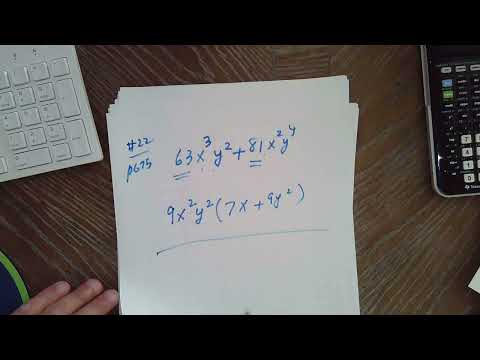 #22
p675
63x³y² + 81x²y⁴
9x²y²(7x + 9y²)